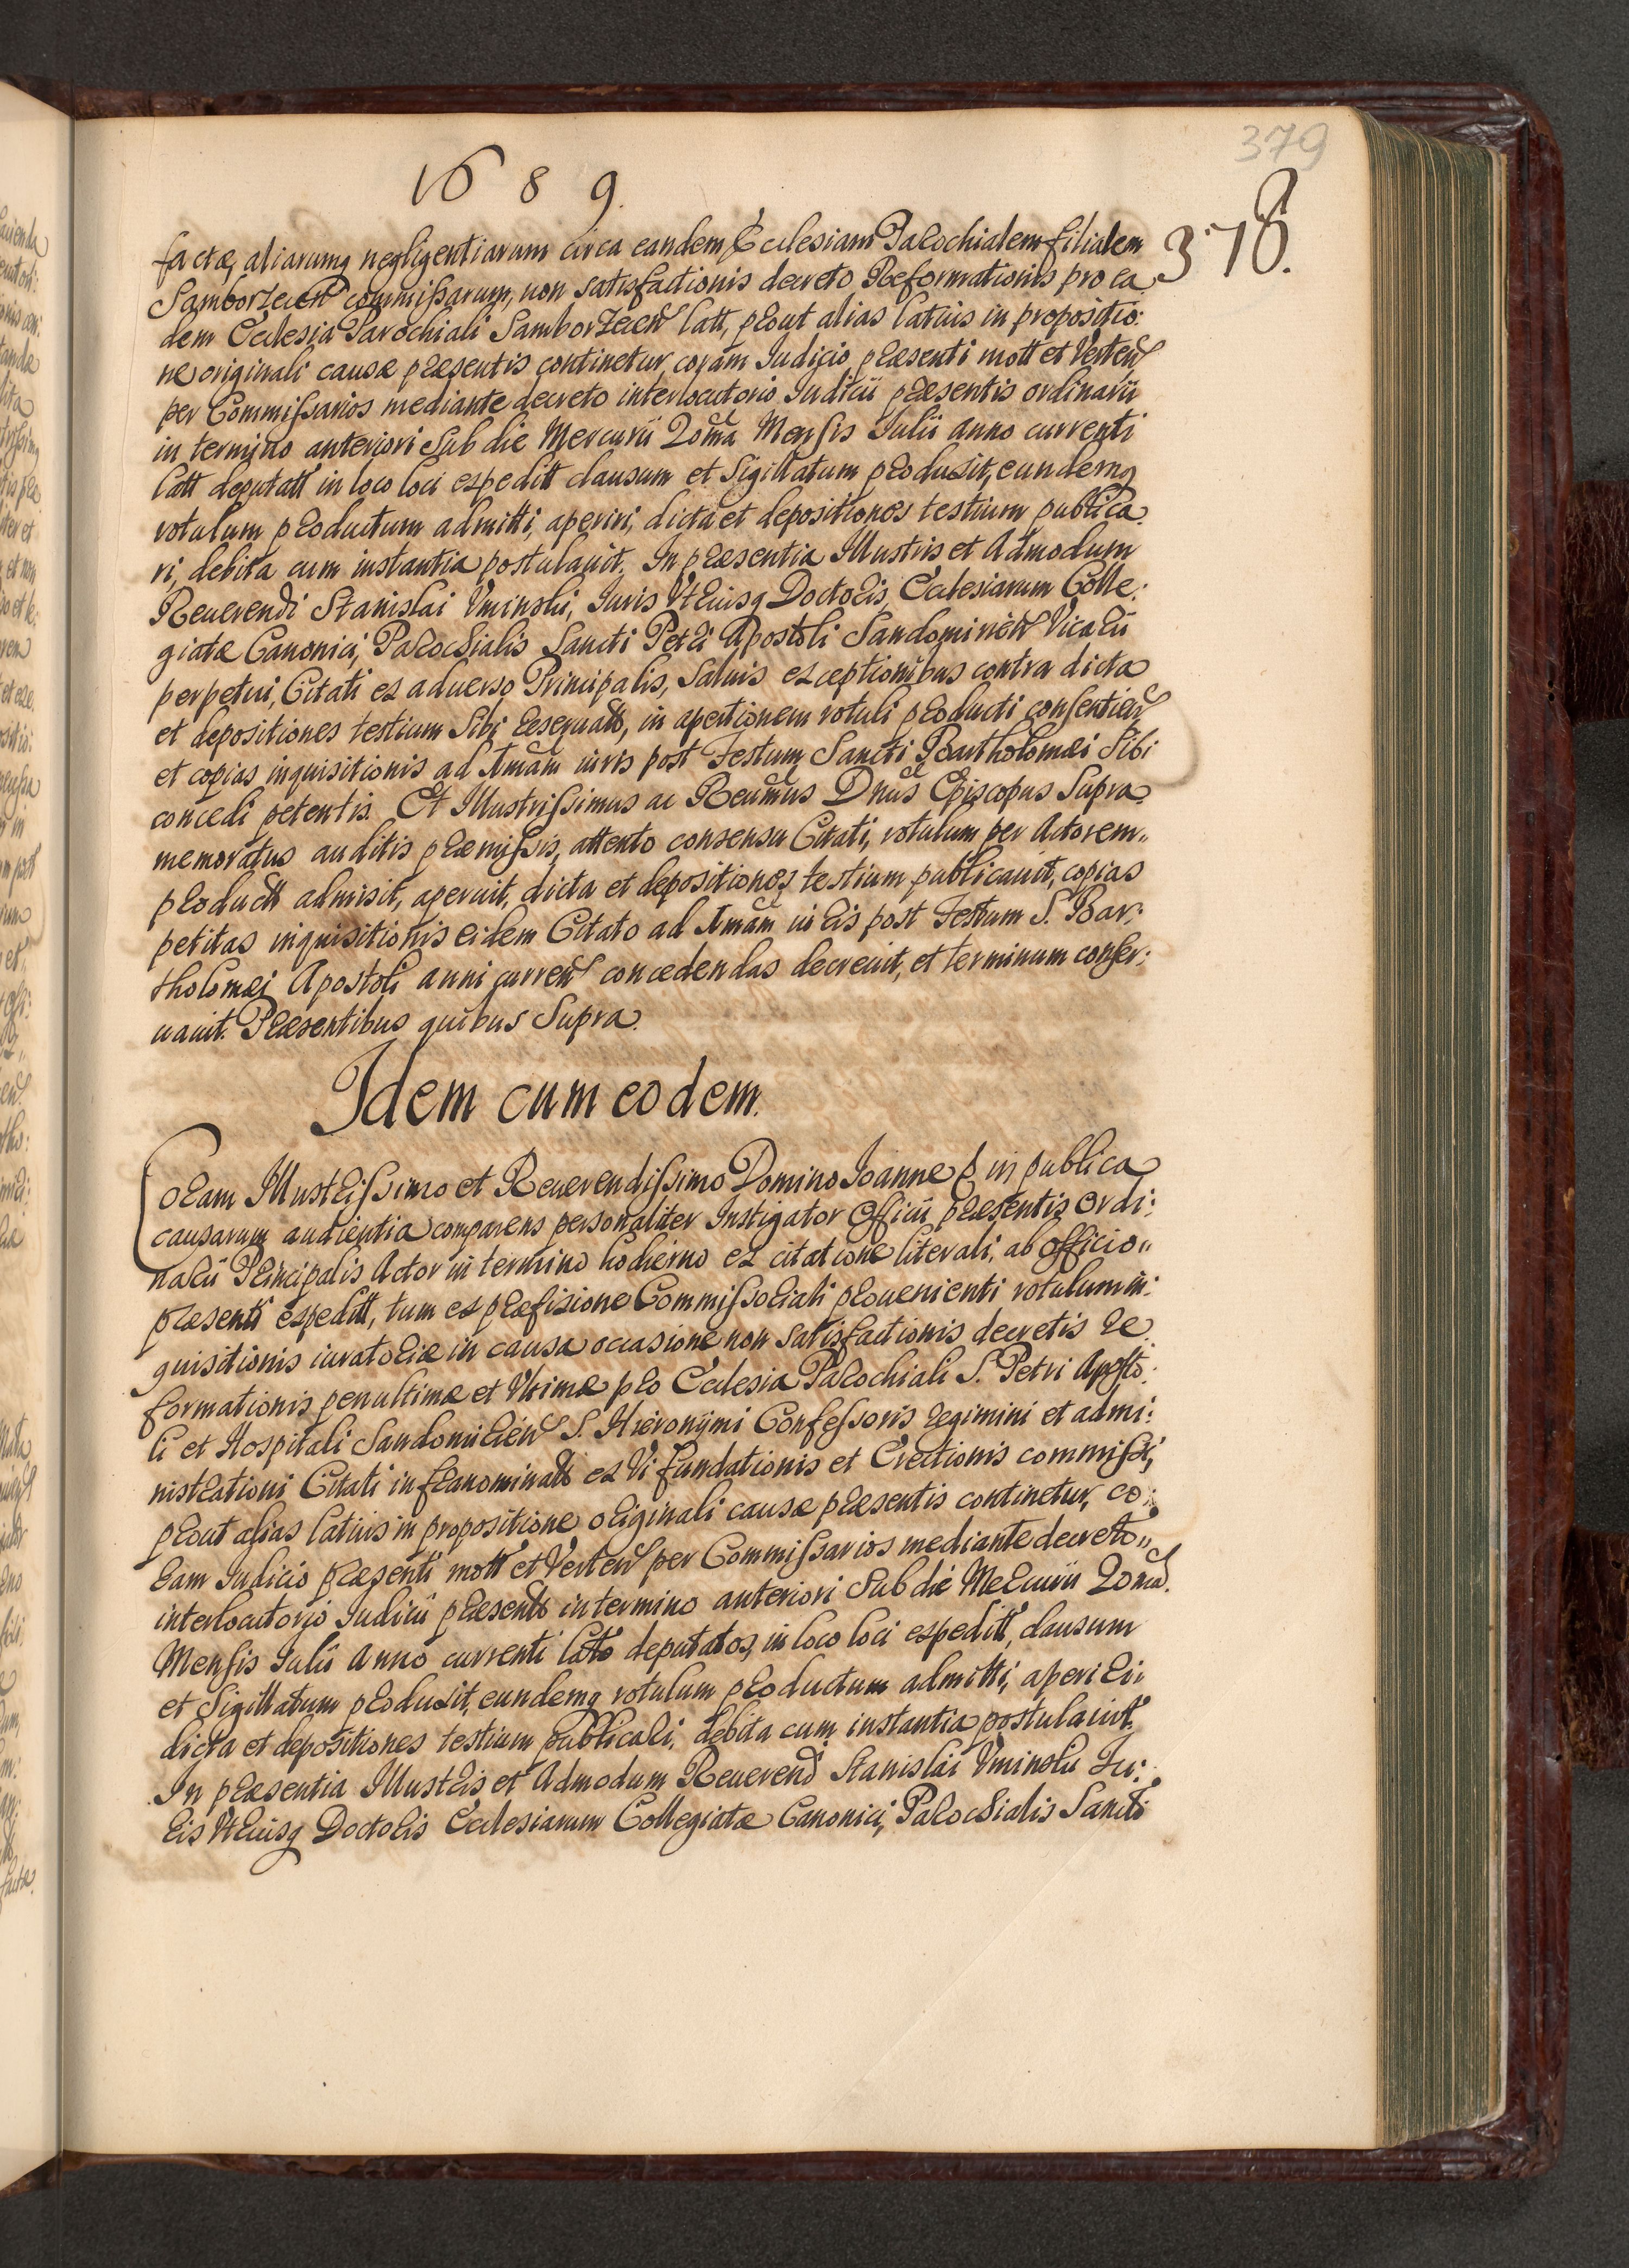 379
1689.
378.
factæ, aliarumq negligentiarum circa eandem Ecclesiam Parochialem filialem
Samborzecen commissarum, non satisfactionis decreto Reformationis pro ea
dem Ecclesia Parochiali Samborzecen latt, prout alias latius in propositio:
ne originali causæ præsentis continetur, coram Iudicio præsenti mott et Verten
per Commissarios mediante decreto interlocutorio Iudicii præsentis ordinarii
in termino anteriori sub die Mercurii 20ma Mensis Iulii anno currenti
latt deputatt in loco loci expeditt clausum et Sigillatum produxit, eundemq
rotulum productum admitti, aperiri, dicta et depositiones testium publica
ri, debita cum instantia postulavit. In præsentia Illustris et Admodum
Reuerendi Stanislai Vminski, Iuris Vtriusq Doctoris, Ecclesiarum Colle:
giatæ Canonici, Parochialis Sancti Petri Apostoli Sandomirien Vicarii
perpetui, Citati ex aduerso Principalis, saluis exceptionibus contra dicta
et depositiones testium sibi reseruatt, in apertionem rotuli producti consentien
et copias inquisitionis ad Amam iuris post Festum Sancti Bartholomæi sibi
concedi petentis. Et Illustrissimus ac Reumus Dnus Episcopus supra
memoratus auditis præmissis, attento consensu Citati, rotulum per Actorem
productt admisit, aperuit, dicta et depositiones testium publicauit, copias
petitas inquisitionis eidem Citato ad Amam iuris post Festum S. Bar:
tholomæi Apostoli anni curren concedendas decreuit, et terminum conser:
uauit. Præsentibus quibus supra.
Idem cum eodem.
Coram Illustrissimo et Reuerendissimo Domino Ioanne & in publica
causarum audientia comparens personaliter Instigator Officii præsentis Ordi:
narii Principalis Actor in termino hodierno ex citatione literali, ab Officio
præsenti expeditt, tum ex præfixione Commissoriali prouenienti rotulum in:
quisitionis iuratoriæ in causa occasione non satisfactionis decretis re
formationis penultimæ et Vltimæ pro Ecclesia Parochiali S. Petri Aposto:
li et Hospitali Sandomirien S. Hieronymi Confessoris regimini et admi:
nistrationi Citati infranominatt ex Vi fundationis et Erectionis commissi,
prout alias latius in propositione originali causæ præsentis continetur, co:
ram Iudicio præsenti mott et Verten per Commissarios mediante decreto
interlocutorio Iudicii præsentt in termino anteriori sub die Mercurii 20ma
Mensis Iulii Anno currenti latto deputatos, in loco loci expeditt, clausum
et Sigillatum produxit, eundemq rotulum productum admitti, aperiri
dicta et depositiones testium publicari, debita cum instantia postulauit.
In præsentia Illustris et Admodum Reuerend Stanislai Vminski Iu:
ris Vtriusq Doctoris Ecclesiarum Collegiatæ Canonici, Parochialis Sancti